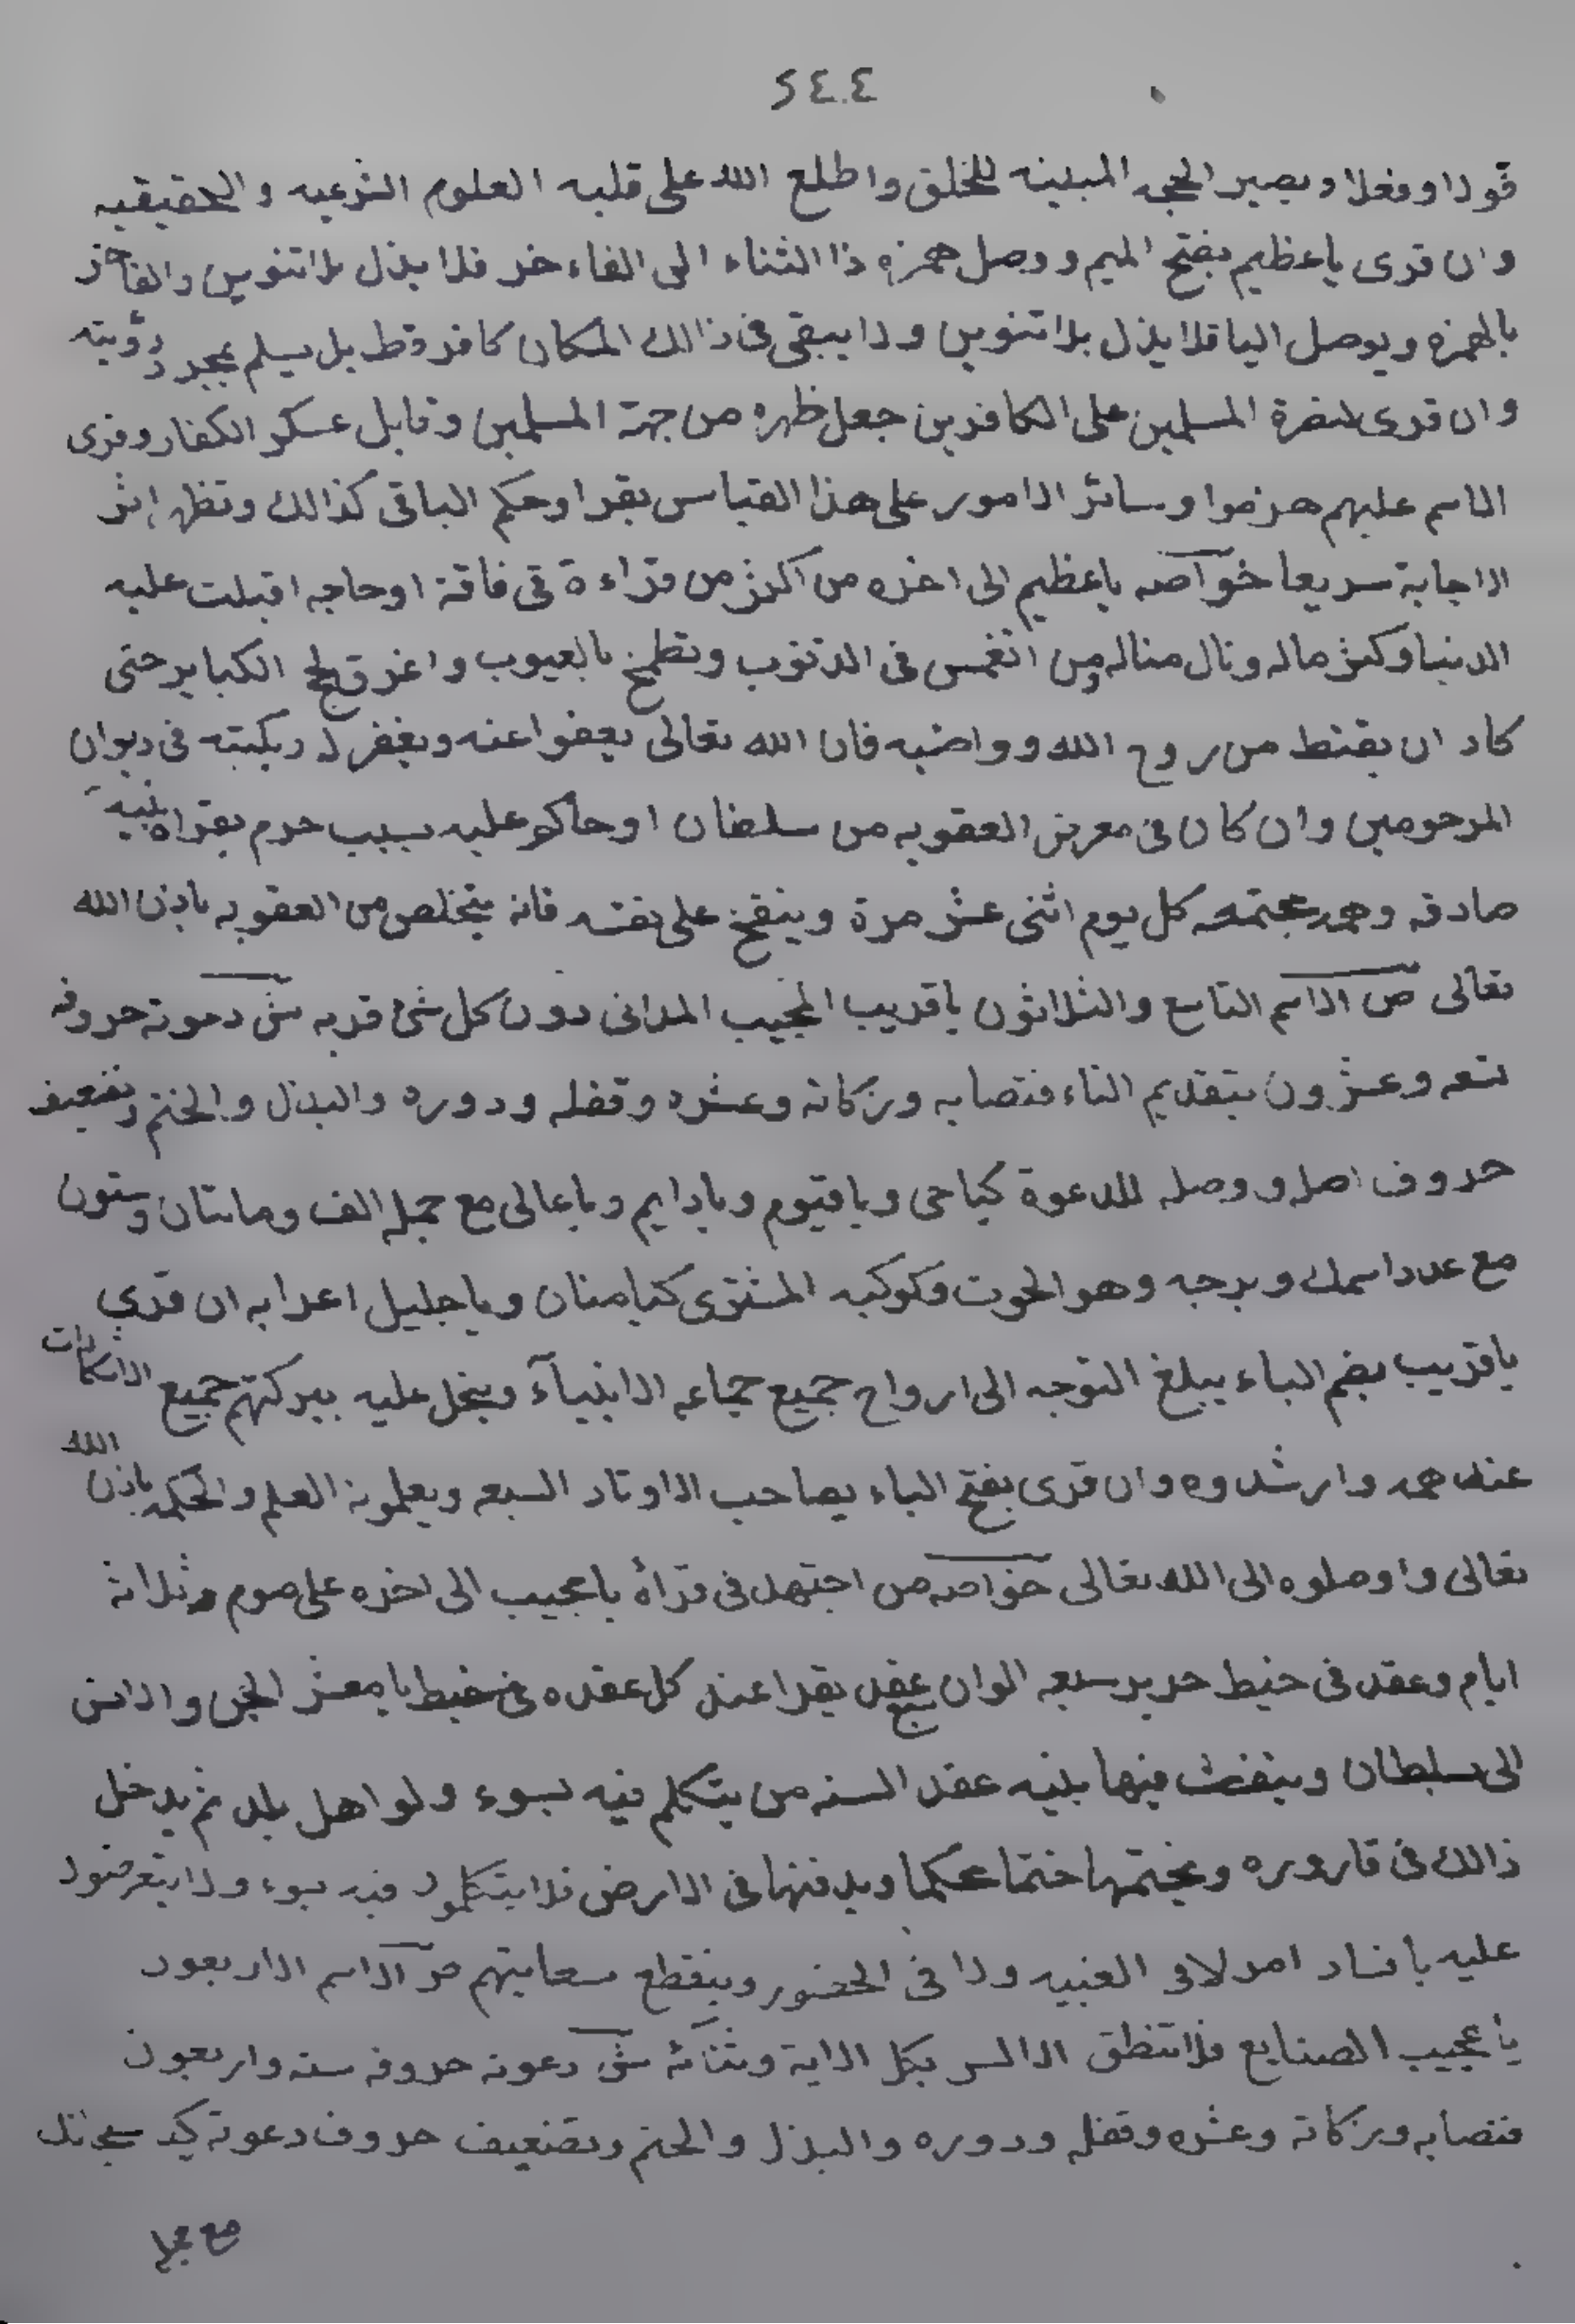 ٢٤٠٤
قولا وفعلا ويصير الحجه المبينه للخلق واطلع الله على قلبه العلوم الشرعيه والحقيقيه
وان قرى ياعظيم بفتح الميم ووصل همزه ذا الثناء الى الفاء خر فلا يذل بلا تنوين والفاخر
بالهمزه ويوصل اليا فلا يذل بلا تنوين ولا يبقى فى ذالك المكان كافر قط بل يسلم بمجرد رؤيته
وان قرى لنصرة المسلمين على الكافرين جعل ظهره من جهة المسلمين وقابل عسكر الكفار وقرى
الاسم عليهم هزموا وسائر الامور على هذا القياس يقرا وحكم الباقى كذالك وتظهر اثر
الاجابة سريعا خواصه ياعظيم الى اخره من اكثر من قراءة فى فاقة او حاجه اقبلت عليه
الدنيا وكثر ماله ونال مناله ومن انغمس فى الذنوب وتطمخ بالعيوب واغرق لج الكباير حتى
كاد ان يقنط من روح الله وواضبه فان الله تعالى يعفوا عنه ويغفر له ويكبته فى ديوان
المرحومين وان كان فى معرض العقوبه من سلطان او حاكم عليه بسبب جرم يقراه بنيه
صادقه وهمه مجتمعه كل يوم اثنى عشر مرة وينفخ على نفسه فانه يتخلص من العقوبه باذن الله
تعالى ص الاسم التاسع والثلاثون ياقريب المجيب المدانى دون كل شئ قربه ش دعوته حروفه
تسعه وعشرون بتقديم التاء فنصابه وزكاته وعشره وقفله ودوره والبذل والختم وتضعيف
حروف اصل ووصله للدعوة كياحى وياقيوم ويادايم وياعالى مع جمله الف ومائتان وستون
مع عدد اسمك وبرجه وهو الحوت وكوكبه المشترى كيامنان وياجليل اعرابه ان قرى
ياقريب بضم الباء يبلغ التوجه الى ارواح جميع جماعه الانبياء وينحل عليه ببركتهم جميع الاشكالات
عنده همه وارشدوه وان قرى بفتح الباء يصاحب الاوتاد السبعه ويعلمونه العلم والحكمه باذن الله
تعالى واوصلوه الى الله تعالى خواصه من اجتهد فى قراة ياعجيب الى اخره على صوم ثلاثة
ايام وعقد فى خيط حرير سبعه الوان عقد يقرا عند كل عقده فى خيط يامعشر الجن والانس
الى سلطان وينفث فيها بنيه عقد السنه من يتكلم فيه بسوء ولو اهل بلد ثم يدخل
ذالك فى قاروره ويختمها ختما محكما ويدفنها فى الارض فلا يتكلمون فيه بسوء ولا يتعرضون
عليه بافساد امر لا فى الغيبه ولا فى الحضور وينقطع سعايتهم ص الاسم الاربعون
ياعجيب الصنايع فلا تنطق الالسن بكل الاية وثنائه ش دعوته حروفه سته واربعون
فنصابه وزكاته وعشره وقفله ودوره والبذل والختم وتضعيف حروف دعوته
مع جمل